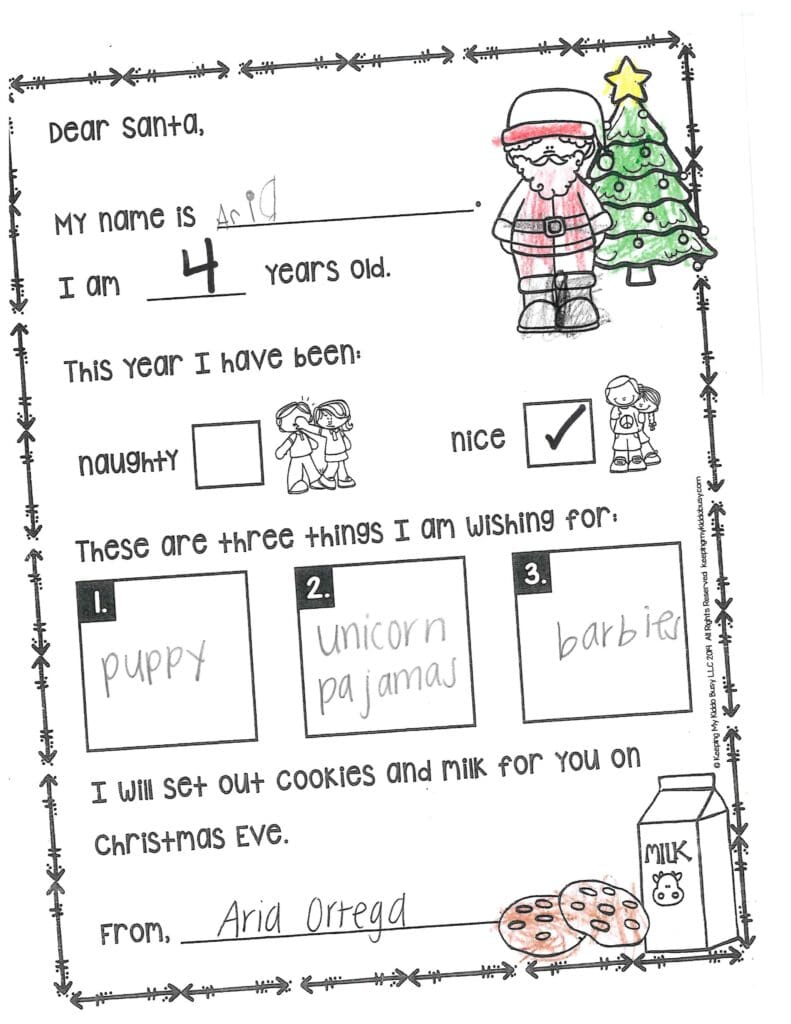 Dear Santa,
My name is Aria.
I am 4 years old.
This year I have been:
naughty nice ✓
These are three things I am wishing for:
1. 2. 3.
puppy unicorn pajamas barbies
I will set out cookies and milk for you on
Christmas Eve.
MILK
From, Aria Ortega
© Keeping My Kiddo Busy LLC 2019 All Rights Reserved keepingmykiddobusy.com